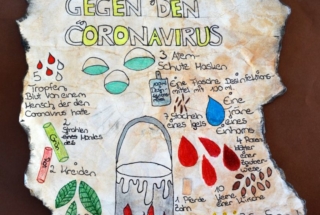 GEGEN DEN
CORONAVIRUS
3 Atem-
Schutz Masken
Eine Flasche Desinfektions-
mittel mit 100 ml.
5
Tropfen
Blut von einem
Mensch der den
Coronavirus hatte
7 Stacheln
eines Igels
Eine
Träne
eines
Einhorns
2
Strahlen
eines Handys
des
4 Rosen
blätter
einer
2 Kreiden
1 Pferde
Zahn
10
Kerne
einer